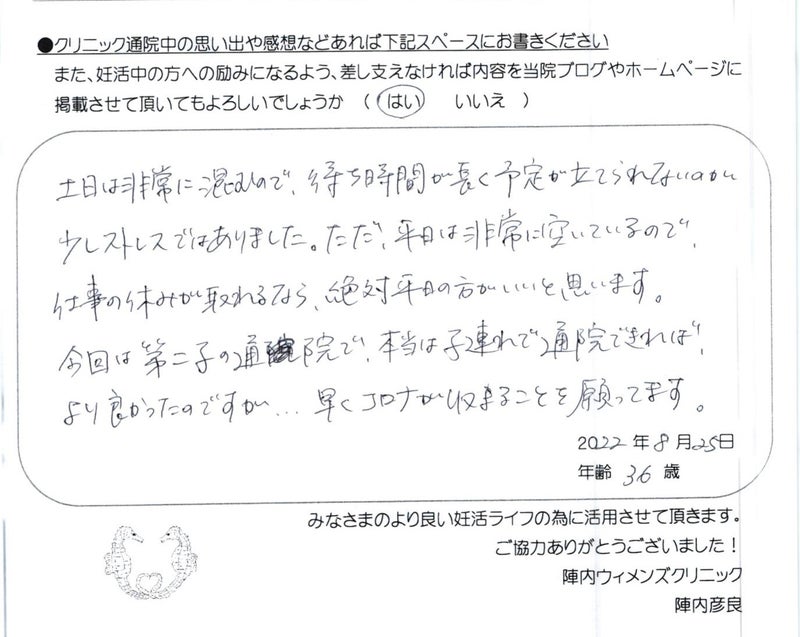 ●クリニック通院中の思い出や感想などあれば下記スペースにお書きください
また、妊活中の方への励みになるよう、差し支えなければ内容を当院ブログやホームページに
掲載させて頂いてもよろしいでしょうか （ はい　いいえ ）
土日は非常に混むので、待ち時間が長く予定が立てられないのが
少しストレスではありました。ただ、平日は非常に空いているので、
仕事の休みが取れるなら、絶対平日の方がいいと思います。
今回は第二子の通院で、本当は子連れで通院できれば、
より良かったのですが... 早くコロナが収まることを願ってます。
2022年8月25日
年齢 36 歳
みなさまのより良い妊活ライフの為に活用させて頂きます。
ご協力ありがとうございました！
陣内ウィメンズクリニック
陣内彦良